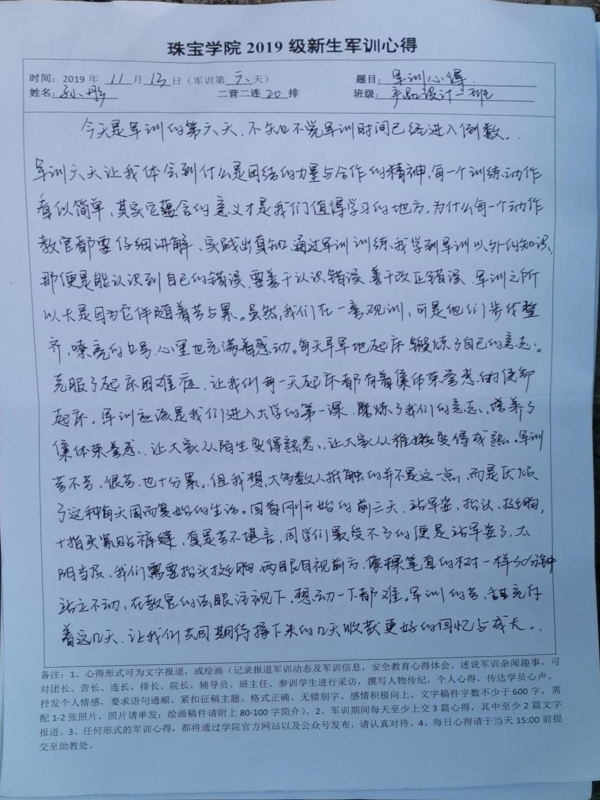 珠宝学院 2019 级新生军训心得
时间：2019 年 11 月 13 日（军训第六天）
题目：军训心得
姓名：孙
二营二连 20 排
班级：产品设计一班
今天是军训的第六天，不知不觉军训时间已经进入倒数。
军训六天让我体会到什么是团结的力量与合作的精神，每一个训练动作
看似简单，其实它蕴含的意义才是我们值得学习的地方。为什么每一个动作
教官都要仔细讲解，实践出真知，通过军训训练我学到军训以外的知识，
那便是能认识到自己的错误，要善于认识错误，善于改正错误，军训之所
以大是因为它伴随着苦与累。虽然，我们在一旁观训，可是他们步伐整
齐，嘹亮的口号，心里也充满着感动。每天早早地起床锻炼了自己的意志。
克服了起床困难症，让我们每一天起床都有着集体荣誉感的使命
起床。军训应该是我们进入大学的第一课，磨炼了我们的意志，培养了
集体荣誉感，让大家从陌生变得熟悉，让大家从稚嫩变得成熟。军训
苦不苦，很苦，也十分累，但我想，大多数人抵触的并不是这一点，而是厌烦
了这种每天周而复始的生活。回首刚开始的前三天，站军姿，抬头，挺胸，
十指夹紧贴裤缝，真是苦不堪言，同学们最受不了的便是站军姿了，太
阳当照，我们需要抬头挺胸，两眼目视前方，像棵笔直的树一样50分钟
站立不动，在教官的法眼注视下，想动一下都难。军训的苦，甜充斥
着这几天，让我们共同期待接下来的几天收获更好的回忆与成长。
备注：1、心得形式可为文字报道，或绘画（记录报道军训动态及军训信息，安全教育心得体会、述说军训杂闻趣事，可
对团长、营长、连长、排长、院长、辅导员、班主任、参训学生进行采访，撰写人物传纪，个人心得，传达学员心声、
抒发个人情感。要求语句通顺、紧扣征稿主题、格式正确、无错别字、感情积极向上，文字稿件字数不少于 600 字，需
配 1-2 张照片，照片请单发；绘画稿件请附上 80-100 字简介）。2、军训期间每天至少上交 3 篇心得，其中至少 2 篇文字
报道。3、任何形式的军训心得，都将通过学院官方网站以及公众号发布，请认真对待。4、每日心得请于当天 15:00 前提
交至助教处。